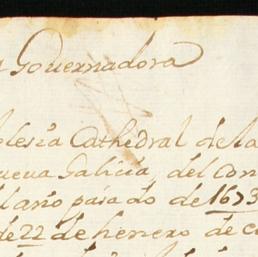 Governadora
Cathedral de la
Galicia, del Con
año pasado de 1673
de 22 de henero de